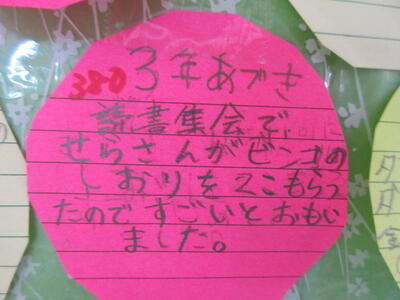 380
3年あづき
読書集会で
せらさんがビンゴの
しおりを2こもらっ
たのですごいとおもい
ました。